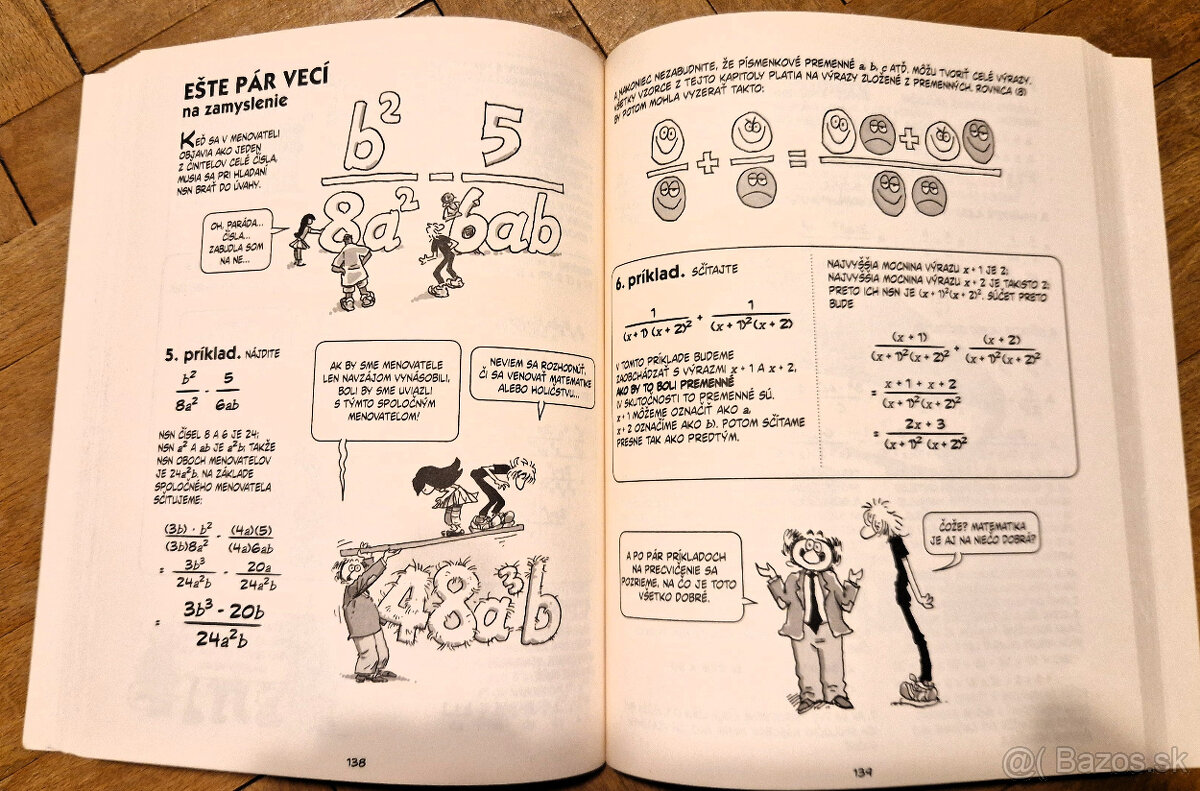 EŠTE PÁR VECÍ
na zamyslenie
KEĎ SA V MENOVATELI
OBJAVIA AKO JEDEN
Z ČINITEĽOV CELÉ ČÍSLA,
MUSIA SA PRI HĽADANÍ
NSN BRAŤ DO ÚVAHY.
b² / 8a² - 5 / 6ab
OH, PARÁDA...
ČÍSLA...
ZABUDLA SOM
NA NE...
5. príklad. NÁJDITE
b² / 8a² - 5 / 6ab
NSN ČÍSEL 8 A 6 JE 24;
NSN a² A ab JE a²b; TAKŽE
NSN OBOCH MENOVATEĽOV
JE 24a²b. NA ZÁKLADE
SPOLOČNÉHO MENOVATEĽA
SČÍTUJEME:
(3b) · b² / (3b)8a² - (4a)(5) / (4a)6ab
= 3b³ / 24a²b - 20a / 24a²b
= 3b³ - 20b / 24a²b
AK BY SME MENOVATELE
LEN NAVZÁJOM VYNÁSOBILI,
BOLI BY SME UVIAZLI
S TÝMTO SPOLOČNÝM
MENOVATEĽOM!
NEVIEM SA ROZHODNÚŤ,
ČI SA VENOVAŤ MATEMATIKE
ALEBO HOLIČSTVU...
48a³b
138
A NAKONIEC NEZABUDNITE, ŽE PÍSMENKOVÉ PREMENNÉ a, b, c ATĎ. MÔŽU TVORIŤ CELÉ VÝRAZY.
VŠETKY VZORCE Z TEJTO KAPITOLY PLATIA NA VÝRAZY ZLOŽENÉ Z PREMENNÝCH. ROVNICA (8)
BY POTOM MOHLA VYZERAŤ TAKTO:
+ = +
6. príklad. SČÍTAJTE
1 / (x + 1) (x + 2)² + 1 / (x + 1)² (x + 2)
V TOMTO PRÍKLADE BUDEME
ZAOBCHÁDZAŤ S VÝRAZMI x + 1 A x + 2,
AKO BY TO BOLI PREMENNÉ
(V SKUTOČNOSTI TO PREMENNÉ SÚ.
x + 1 MÔŽEME OZNAČIŤ AKO a,
x + 2 OZNAČÍME AKO b). POTOM SČÍTAME
PRESNE TAK AKO PREDTÝM.
NAJVYŠŠIA MOCNINA VÝRAZU x + 1 JE 2;
NAJVYŠŠIA MOCNINA VÝRAZU x + 2 JE TAKISTO 2;
PRETO ICH NSN JE (x + 1)²(x + 2)². SÚČET PRETO
BUDE
(x + 1) / (x + 1)²(x + 2)² + (x + 2) / (x + 1)²(x + 2)²
= x + 1 + x + 2 / (x + 1)²(x + 2)²
= 2x + 3 / (x + 1)² (x + 2)²
A PO PÁR PRÍKLADOCH
NA PRECVIČENIE SA
POZRIEME, NA ČO JE TOTO
VŠETKO DOBRÉ.
ČOŽE? MATEMATIKA
JE AJ NA NIEČO DOBRÁ?
139
@( Bazos.sk